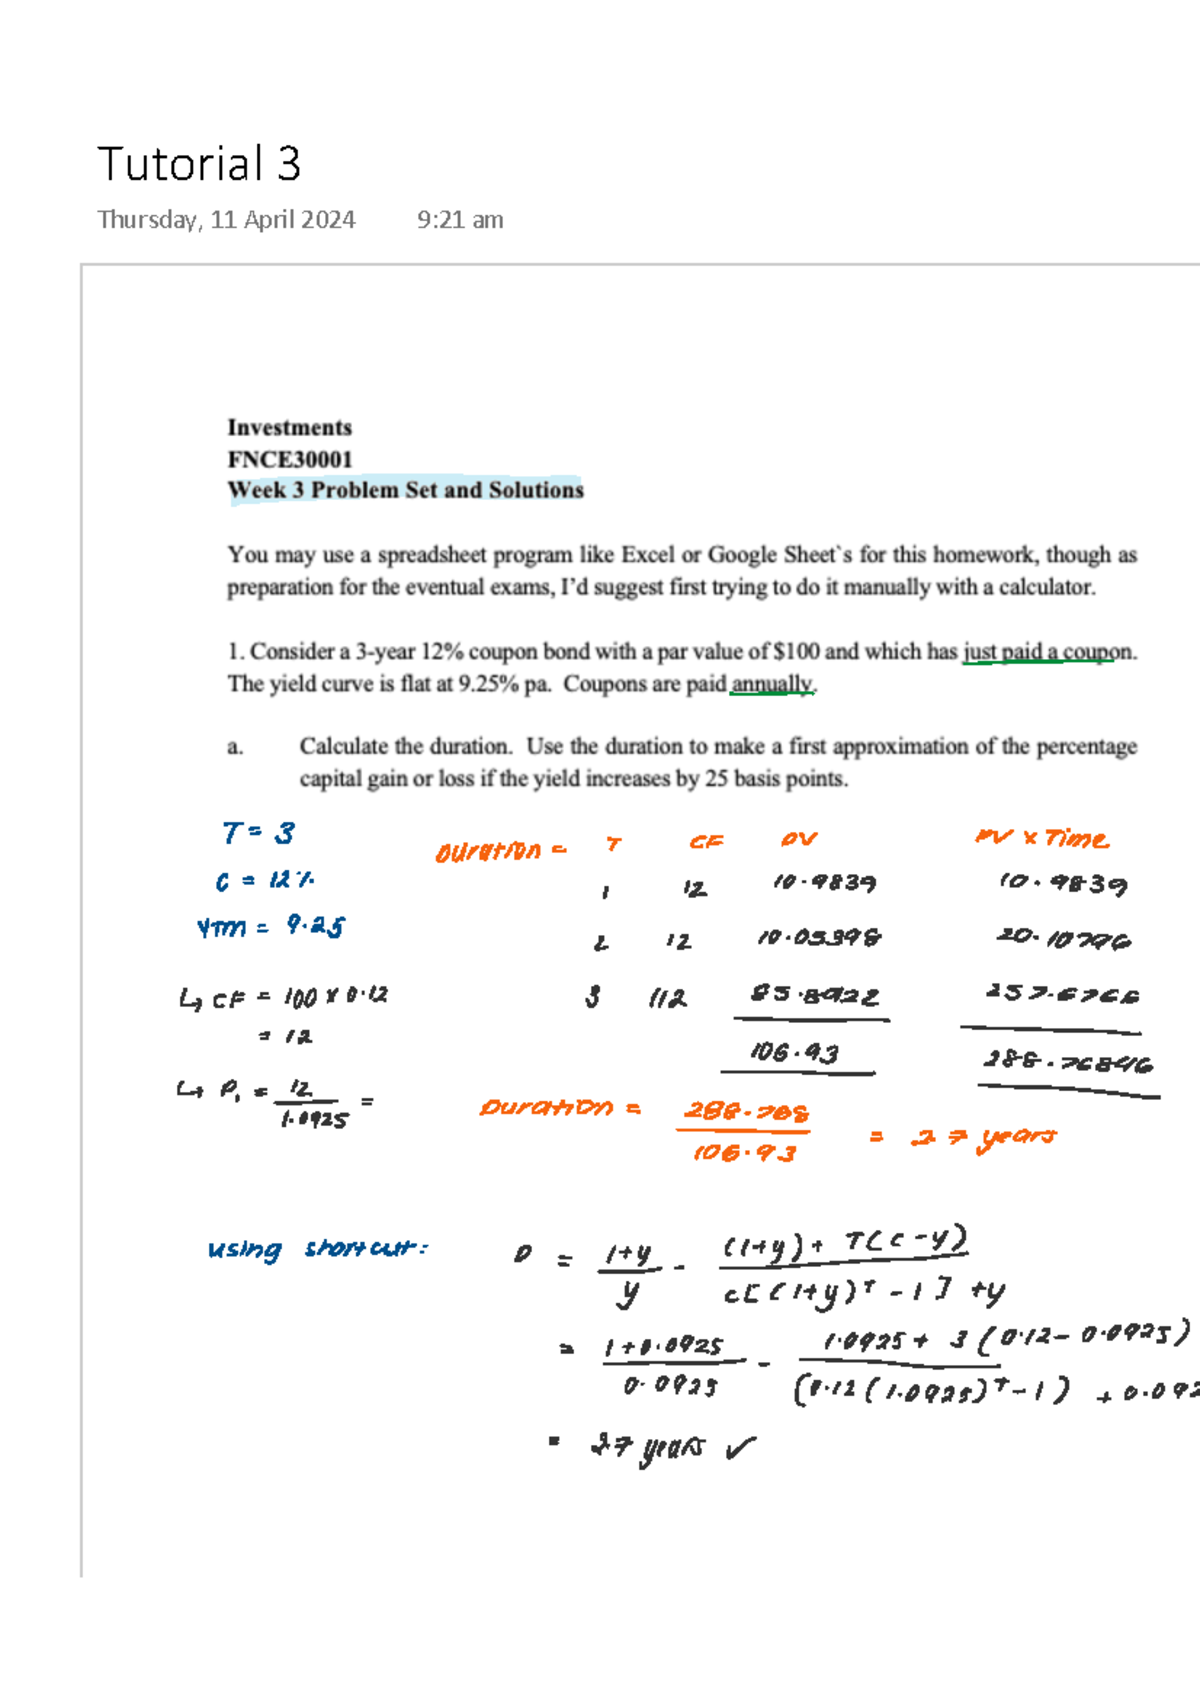 Tutorial 3
Thursday, 11 April 2024 9:21 am
Investments
FNCE30001
Week 3 Problem Set and Solutions
You may use a spreadsheet program like Excel or Google Sheet`s for this homework, though as
preparation for the eventual exams, I'd suggest first trying to do it manually with a calculator.
1. Consider a 3-year 12% coupon bond with a par value of $100 and which has just paid a coupon.
The yield curve is flat at 9.25% pa. Coupons are paid annually.
a. Calculate the duration. Use the duration to make a first approximation of the percentage
capital gain or loss if the yield increases by 25 basis points.
T = 3
C = 12%
YTM = 9.25
↳ CF = 100 x 0.12
= 12
↳ P₁ = 12 / 1.0925 =
Duration = T CF PV PV x Time
1 12 10.9839 10.9839
2 12 10.05398 20.10796
3 112 85.8922 257.6766
106.93 288.76846
Duration = 288.768 / 106.93 = 2.7 years
using shortcut: D = 1+y / y - (1+y) + T(c-y) / c[(1+y)ᵀ - 1] + y
= 1+0.0925 / 0.0925 - 1.0925 + 3(0.12 - 0.0925) / (0.12(1.0925)ᵀ - 1) + 0.092
= 2.7 years ✓